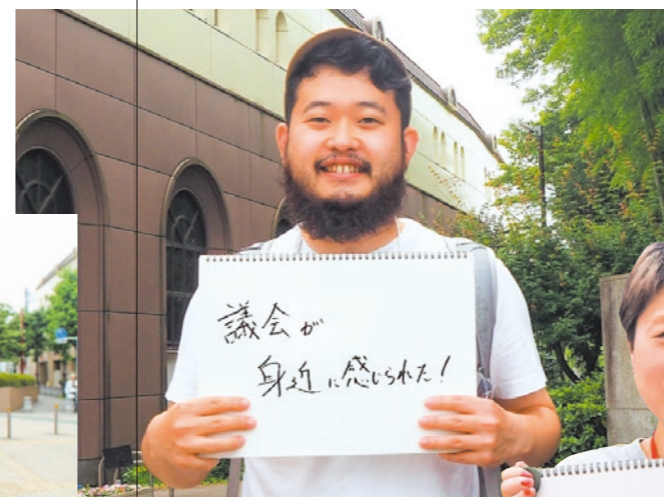 議会が
身近に感じられた！